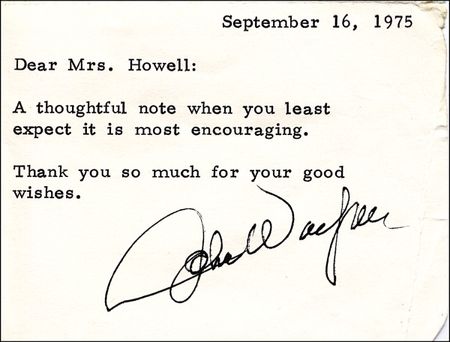 September 16, 1975
Dear Mrs. Howell:
A thoughtful note when you least
expect it is most encouraging.
Thank you so much for your good
wishes.
John